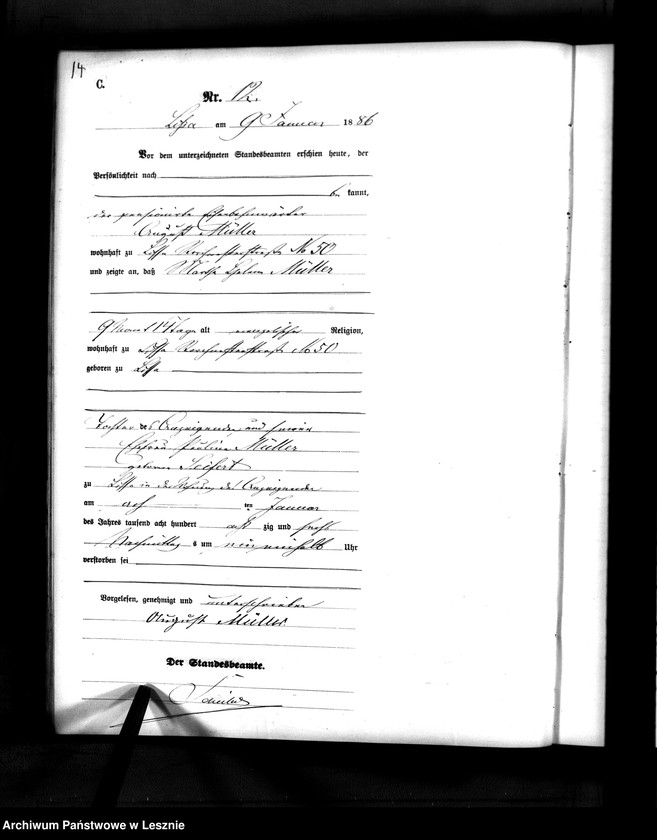 14
C.
Nr. 12.
Lissa am 9 Januar 1886
Vor dem unterzeichneten Standesbeamten erschien heute, der
Persönlichkeit nach
be kannt,
der pensionirte Eisenbahnwärter
August Müller
wohnhaft zu Lissa № 50
und zeigte an, daß Martha Müller
9 Monat 14 Tage alt evangelischer Religion,
wohnhaft zu Lissa № 50
geboren zu Lissa
Tochter des Anzeigenden und seiner
Ehefrau Pauline Müller
geborene Seifert
zu Lissa in der Wohnung des Anzeigenden
am acht ten Januar
des Jahres tausend acht hundert acht zig und sechs
Nachmittags um neun einhalb Uhr
verstorben sei
Vorgelesen, genehmigt und unterschrieben
August Müller.
Der Standesbeamte.
Archiwum Państwowe w Lesznie